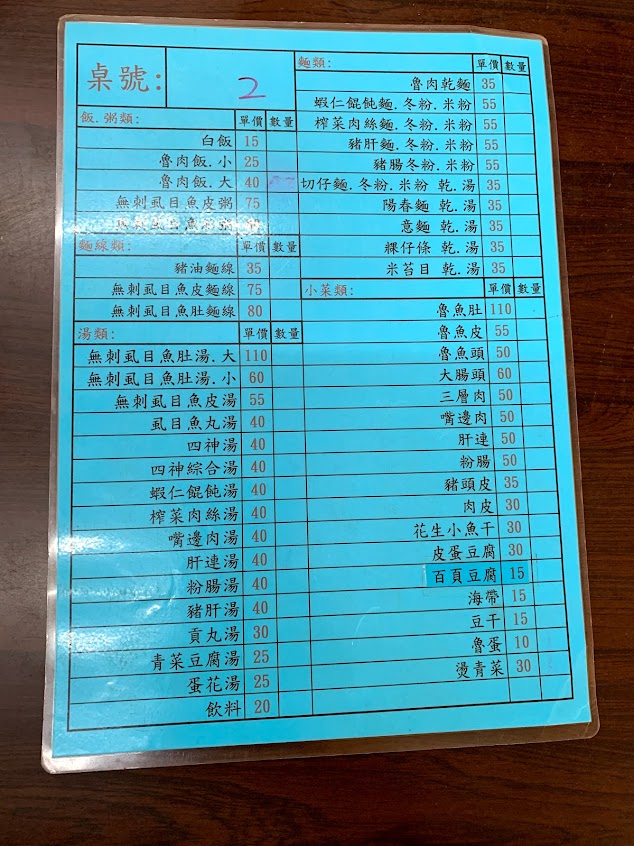 桌號: 2
飯.粥類: 單價 數量
白飯 15
魯肉飯.小 25
魯肉飯.大 40
無刺虱目魚皮粥 75
麵線類: 單價 數量
豬油麵線 35
無刺虱目魚皮麵線 75
無刺虱目魚肚麵線 80
湯類: 單價 數量
無刺虱目魚肚湯.大 110
無刺虱目魚肚湯.小 60
無刺虱目魚皮湯 55
虱目魚丸湯 40
四神湯 40
四神綜合湯 40
蝦仁餛飩湯 40
榨菜肉絲湯 40
嘴邊肉湯 40
肝連湯 40
粉腸湯 40
豬肝湯 40
貢丸湯 30
青菜豆腐湯 25
蛋花湯 25
飲料 20
麵類: 單價 數量
魯肉乾麵 35
蝦仁餛飩麵.冬粉.米粉 55
榨菜肉絲麵.冬粉.米粉 55
豬肝麵.冬粉.米粉 55
豬腸冬粉.米粉 55
切仔麵.冬粉.米粉 乾.湯 35
陽春麵 乾.湯 35
意麵 乾.湯 35
粿仔條 乾.湯 35
米苔目 乾.湯 35
小菜類: 單價 數量
魯魚肚 110
魯魚皮 55
魯魚頭 50
大腸頭 60
三層肉 50
嘴邊肉 50
肝連 50
粉腸 50
豬頭皮 35
肉皮 30
花生小魚干 30
皮蛋豆腐 30
百頁豆腐 15
海帶 15
豆干 15
魯蛋 10
燙青菜 30